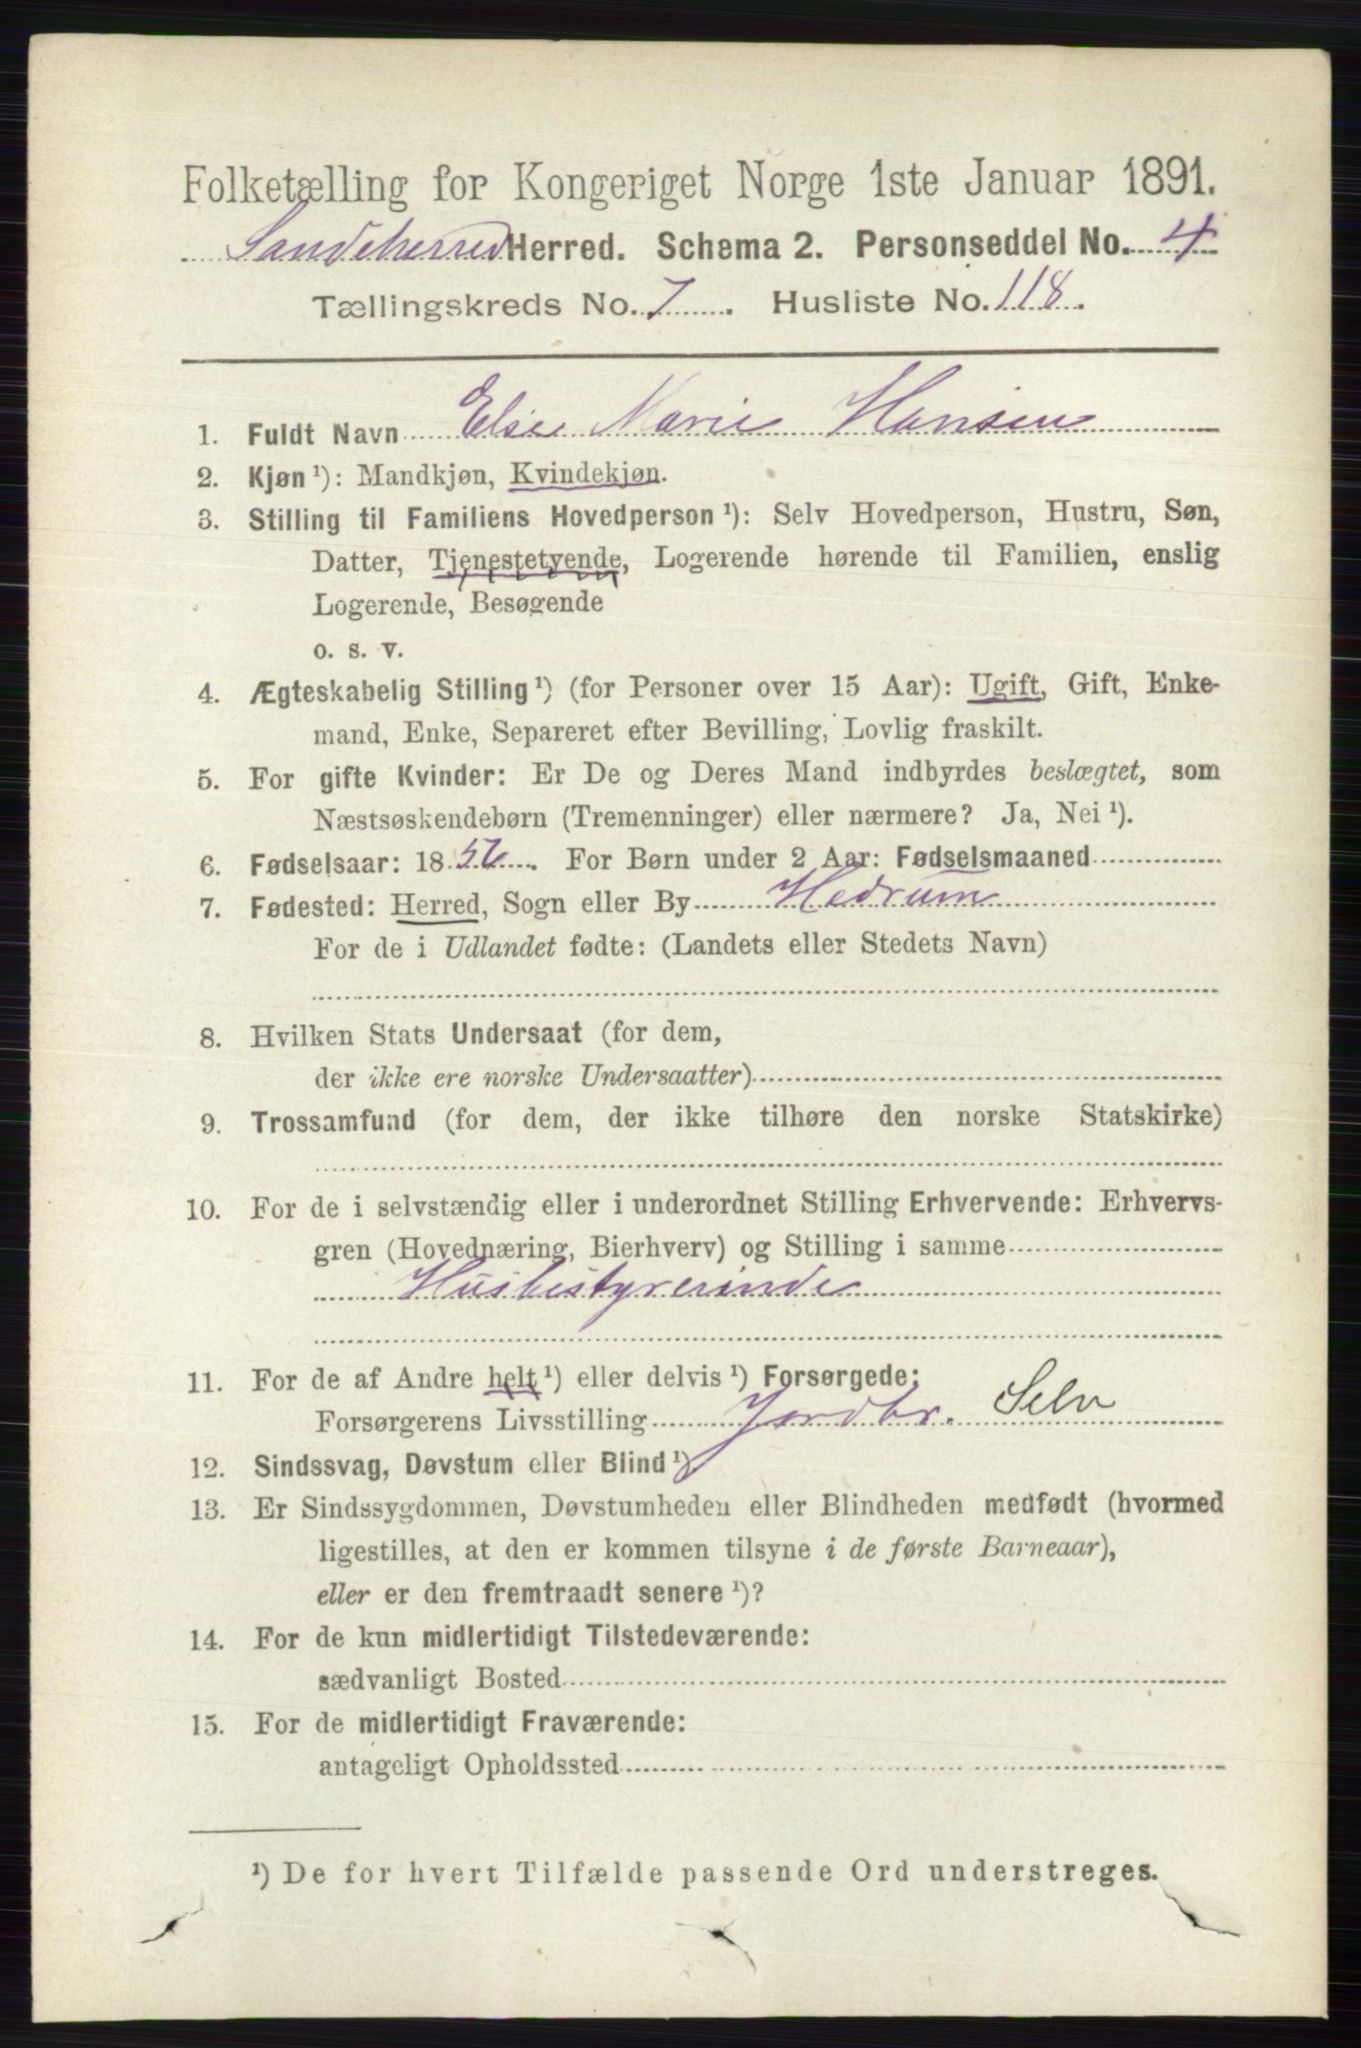 Folketælling for Kongeriget Norge 1ste Januar 1891.
Sandeherred Herred. Schema 2. Personseddel No. 4
Tællingskreds No. 7. Husliste No. 118.
1. Fuldt Navn Else Marie Hansen
2. Kjøn ¹): Mandkjøn, Kvindekjøn.
3. Stilling til Familiens Hovedperson ¹): Selv Hovedperson, Hustru, Søn,
Datter, Tjenestetyende, Logerende hørende til Familien, enslig
Logerende, Besøgende
o. s. v.
4. Ægteskabelig Stilling ¹) (for Personer over 15 Aar): Ugift, Gift, Enke-
mand, Enke, Separeret efter Bevilling, Lovlig fraskilt.
5. For gifte Kvinder: Er De og Deres Mand indbyrdes beslægtet, som
Næstsøskendebørn (Tremenninger) eller nærmere? Ja, Nei ¹).
6. Fødselsaar: 18. For Børn under 2 Aar: Fødselsmaaned
7. Fødested: Herred, Sogn eller By Hedrum
For de i Udlandet fødte: (Landets eller Stedets Navn)
8. Hvilken Stats Undersaat (for dem,
der ikke ere norske Undersaatter)
9. Trossamfund (for dem, der ikke tilhøre den norske Statskirke)
10. For de i selvstændig eller i underordnet Stilling Erhvervende: Erhvervs-
gren (Hovednæring, Bierhverv) og Stilling i samme
Husbestyrerinde
11. For de af Andre helt ¹) eller delvis ¹) Forsørgede:
Forsørgerens Livsstilling Jordbr. Selv
12. Sindssvag, Døvstum eller Blind ¹)
13. Er Sindssygdommen, Døvstumheden eller Blindheden medfødt (hvormed
ligestilles, at den er kommen tilsyne i de første Barneaar),
eller er den fremtraadt senere ¹)?
14. For de kun midlertidigt Tilstedeværende:
sædvanligt Bosted
15. For de midlertidigt Fraværende:
antageligt Opholdssted
¹) De for hvert Tilfælde passende Ord understreges.